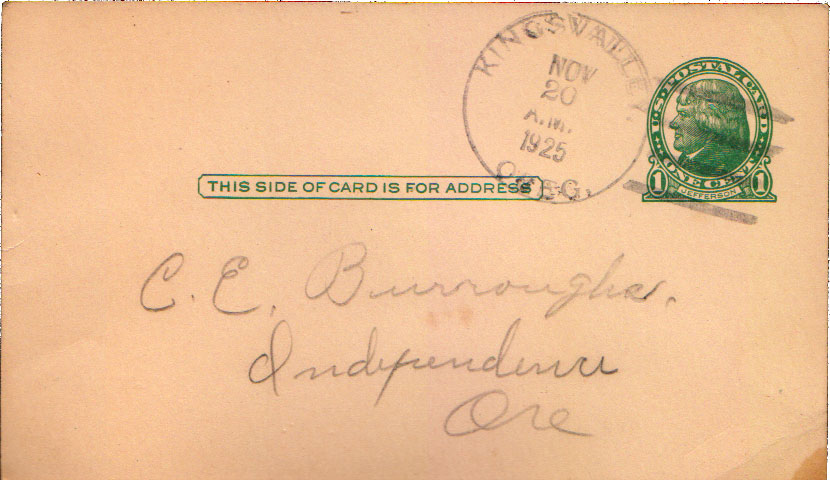 KINGS VALLEY,
NOV
20
A.M.
1925
OREG.
U.S. POSTAL CARD
ONE CENT
1 JEFFERSON 1
THIS SIDE OF CARD IS FOR ADDRESS
C. E. Burroughs.
Independence
Ore